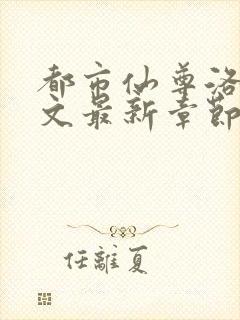 都市仙尊洛
文最新章節
任離夏